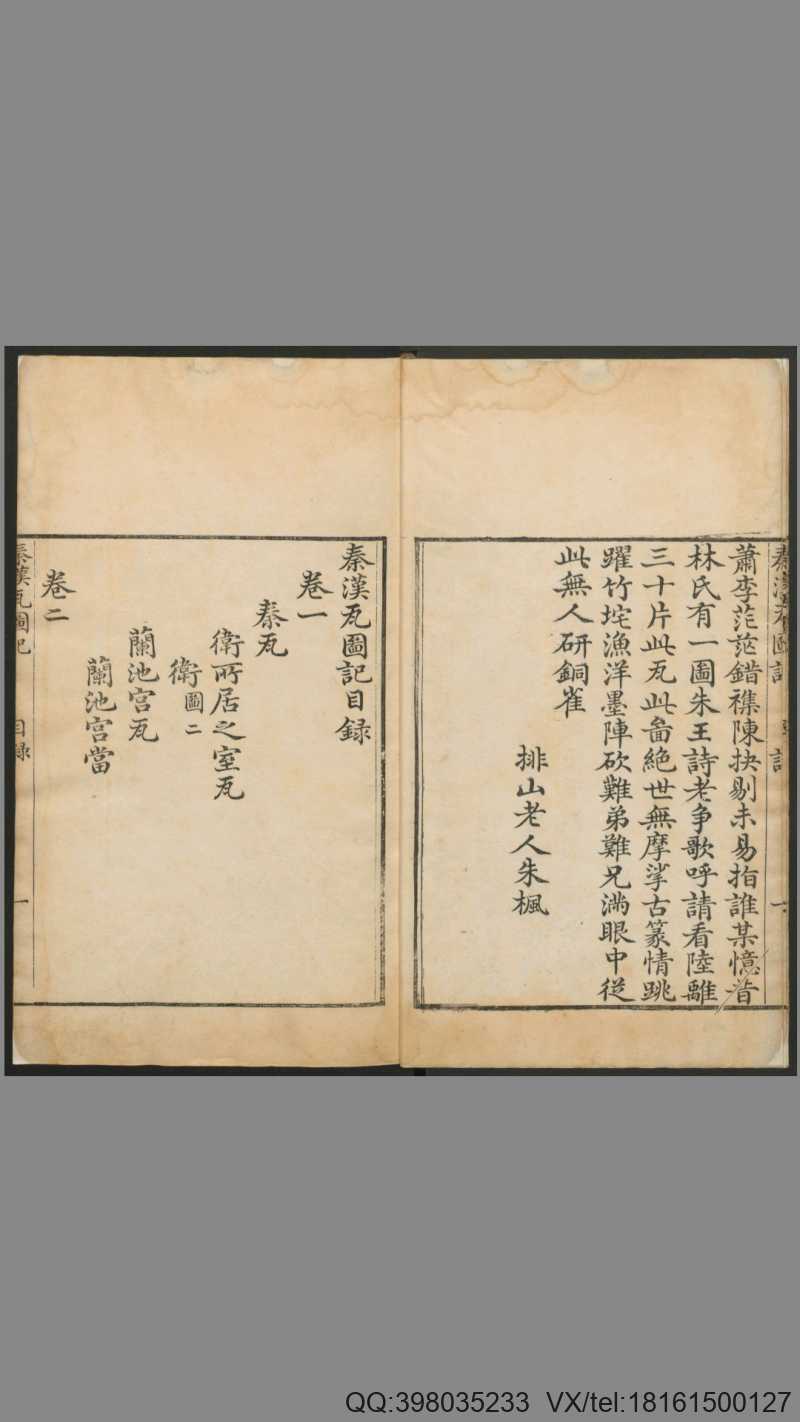 蕭李茫茫錯襍陳抉剔未易指誰某憶昔
林氏有一圖朱王詩老爭歌呼請看陸離
三十片此瓦此啚絶世無摩挲古篆情跳
躍竹垞漁洋墨陣砍難弟難兄滿眼中從
此無人硏銅雀
排山老人朱楓
秦漢瓦圖記目録
卷一
秦瓦
衛所居之室瓦
衛圖二
蘭池宫瓦
蘭池宫當
卷二
秦漢瓦圖記 目録 一
QQ:398035233 VX/tel:18161500127